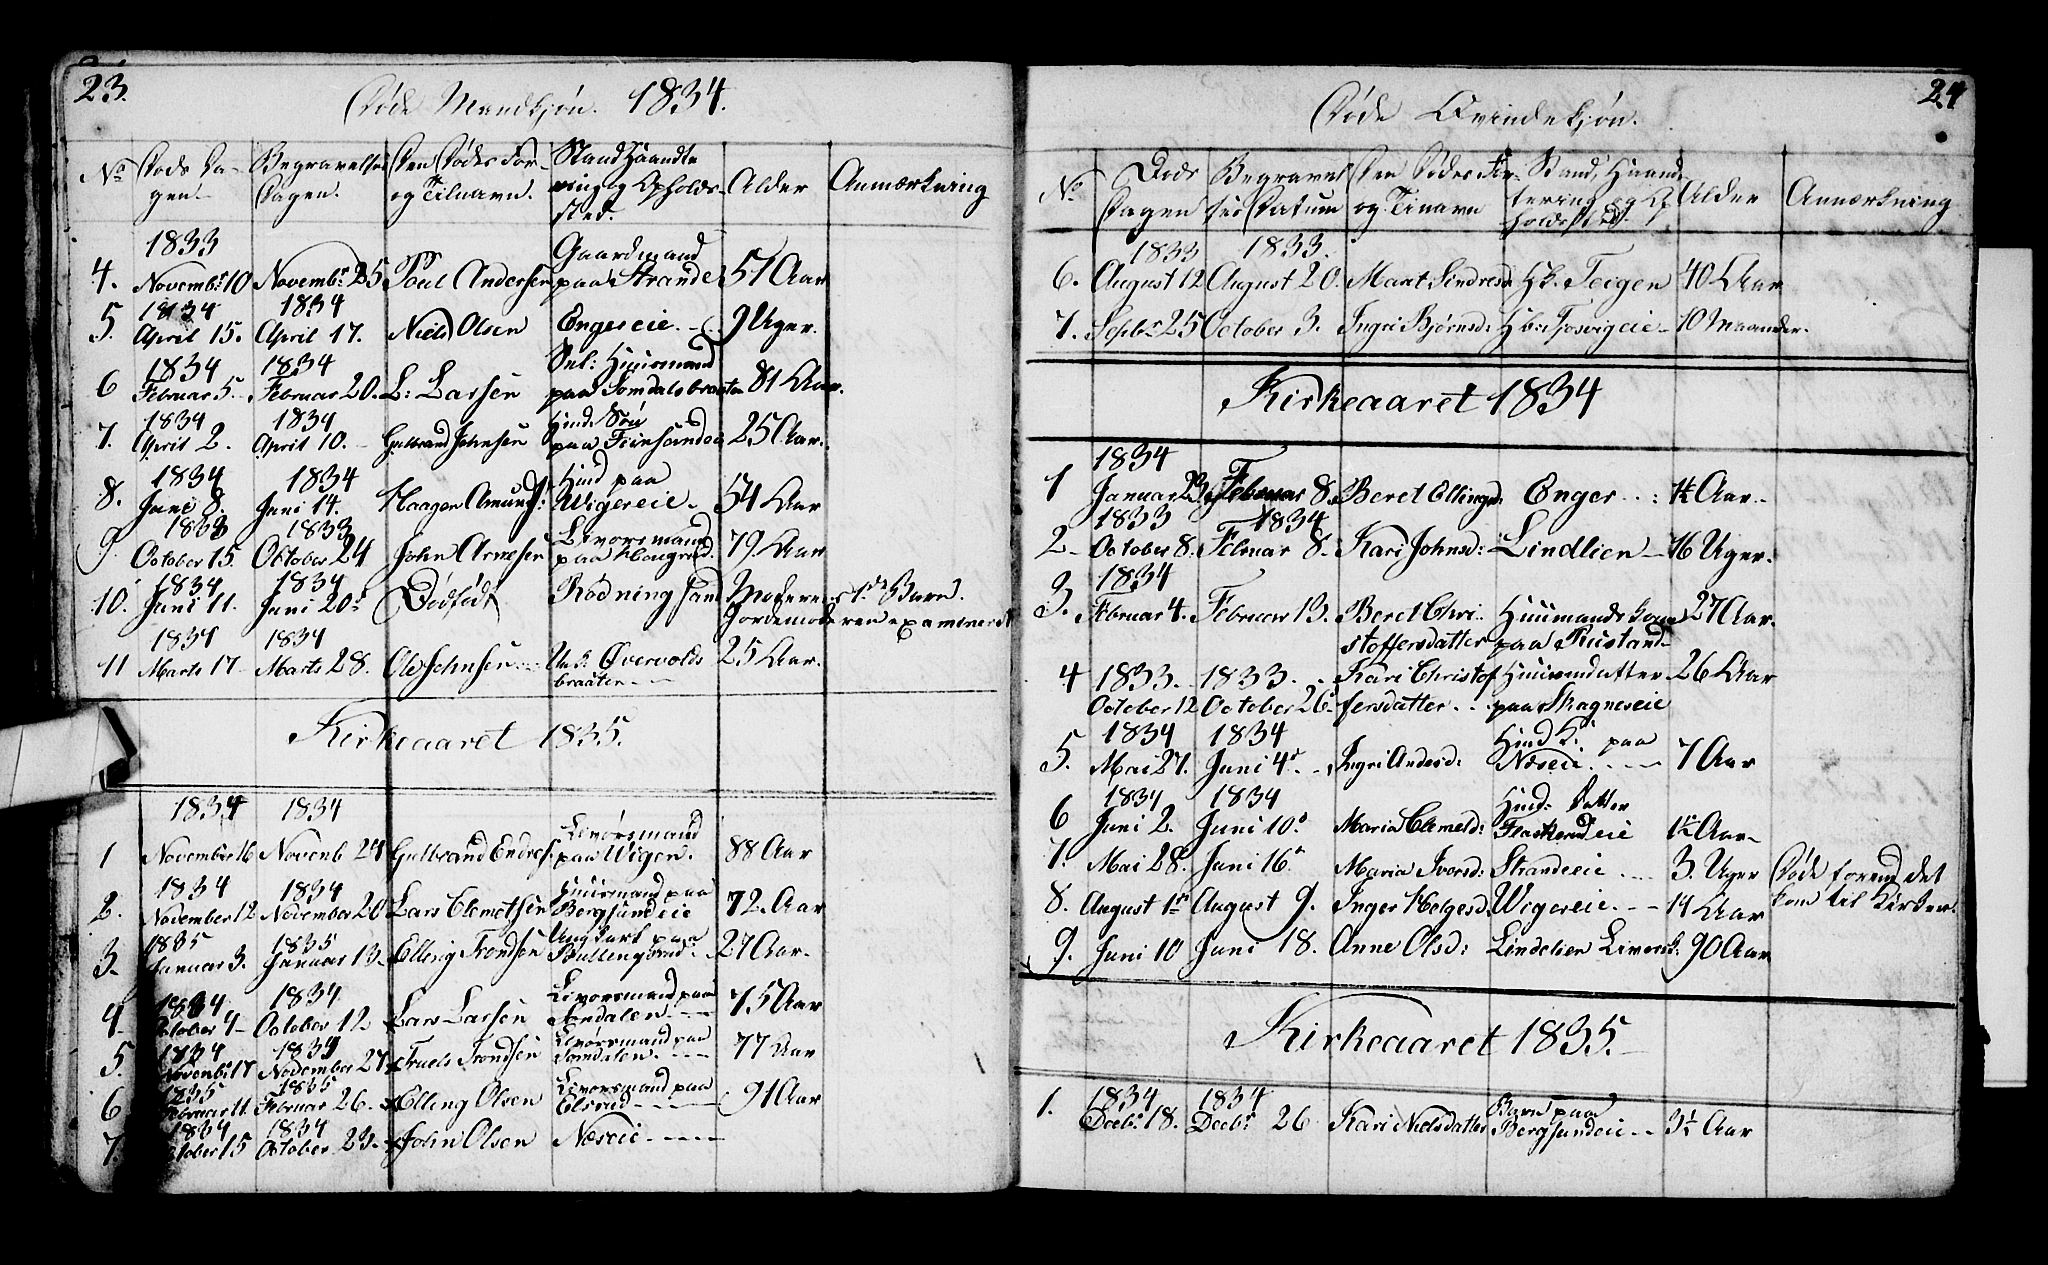 23.
Døde Mandkjøn. 1834.
No Døds Da- Begravelses Den Dødes For- Stand Haandte Alder Anmærkning
gen. Dagen. og Tilnavn. ring og Opholds-
sted.
1833 Gaardmand
4. Novembr 10 Novembr 25 Poul Andersen paa Strande 51 Aar
1834 1834
5. April 15. April 17. Niels Olsen Engereie 9 Uger.
1834 1834 Huusmand
6 Februar 5. Februar 20. L: Larsen paa Somdalsbraaten 81 Aar.
1834 1834 Huusd. Søn
7. April 2. April 10. Gulbrand Johnsen paa 25 Aar.
1834 1834 Huusd paa
8. Juni 8. Juni 14. Haagen Amunds: Wigereie. 54 Aar
1833 1833 Livørsmand
9. October 15. October 24 John Arnesen paa Hougrud. 79. Aar
1834 1834
10. Juni 11. Juni 20de Dødfødt Rødningsand Moderens 1ste Barn.
Jordemoderen examineret
1834 1834
11 Marts 17 Marts 28. Ole Johnsen Øvervolds 25 Aar.
braaten
Kirkeaaret 1835.
1834 1834 Livørsmand
1 November 16 Novemb 24 Gulbrand Endres: paa Wigen. 88 Aar
1834 1834 Huusmand paa
2. November 12 November 20 Lars Clemetsen Bergsundeie 72. Aar
1835 1835 Ungkarl paa
3. Januar 3. Januar 13. Elling Trondsen Bullengsrud. 27 Aar.
1834 1834 Livørsmand paa
4 October 4 October 12 Lars Larsen Somdalen. 75 Aar
1834 1834 Livørsmand paa
5. Novembr 17 November 27 Truels Trondsen Somdalen. 77 Aar
1835 1835 Livørsmand paa
6 Februar 11. Februar 26. Elling Olsen Elsrud 91 Aar
1834 1834
7. October 15 October 23. John Olsen Næseie
24
Døde Qvindekjøn.
No Døds Begravel Den Dødes For- Stand, Haand Alder Anmærkning
Dagen ses Datum og Tinavn tering og Op
holdssted.
1833 1833.
6. August 12 August 20. Marit Sindresd: Hk. Teigen 40 Aar
7. Septbr 25 October 3. Ingri Bjørnsd: Hb: Tosvigeie 10 Maander.
Kirkeaaret 1834
1834
1 Januar 23. Februar 8. Beret Ellingsd. Enger 1½ Aar
1833 1834
2 October 8. Februar 8. Kari Johnsd: Lindlien 16 Uger.
1834
3. Februar 4. Februar 13. Beret Chri- Huusmands Kone 27 Aar.
stoffersdatter paa Rustand
4 1833. 1833. Kari Christof Huusmdatter 26 Aar
October 12 October 26 fersdatter paa Skagneseie
1834 1834 Huusd K: paa
5. Mai 27. Juni 4de Ingri Andesd: Næseie 7 Aar
1834 1834 Huusd: Datter
6 Juni 2. Juni 10de Maria Clemetsd: Flaskerudeie 1½ Aar
7. Mai 28. Juni 16de Maria Iversd: Strandeeie 3. Uger Døde forend det
8. August 1ste August 9. Inger Helgesd: Wigereie 14 Aar kom til Kirken.
9. Juni 10 Juni 18. Anne Olsd: Lindelien Liversk: 90 Aar
Kirkeaaret 1835.
1834 1834 Barn paa
1. Decbr 18. Decbr 26 Kari Nielsdatter Bergsundeie 3½ Aar